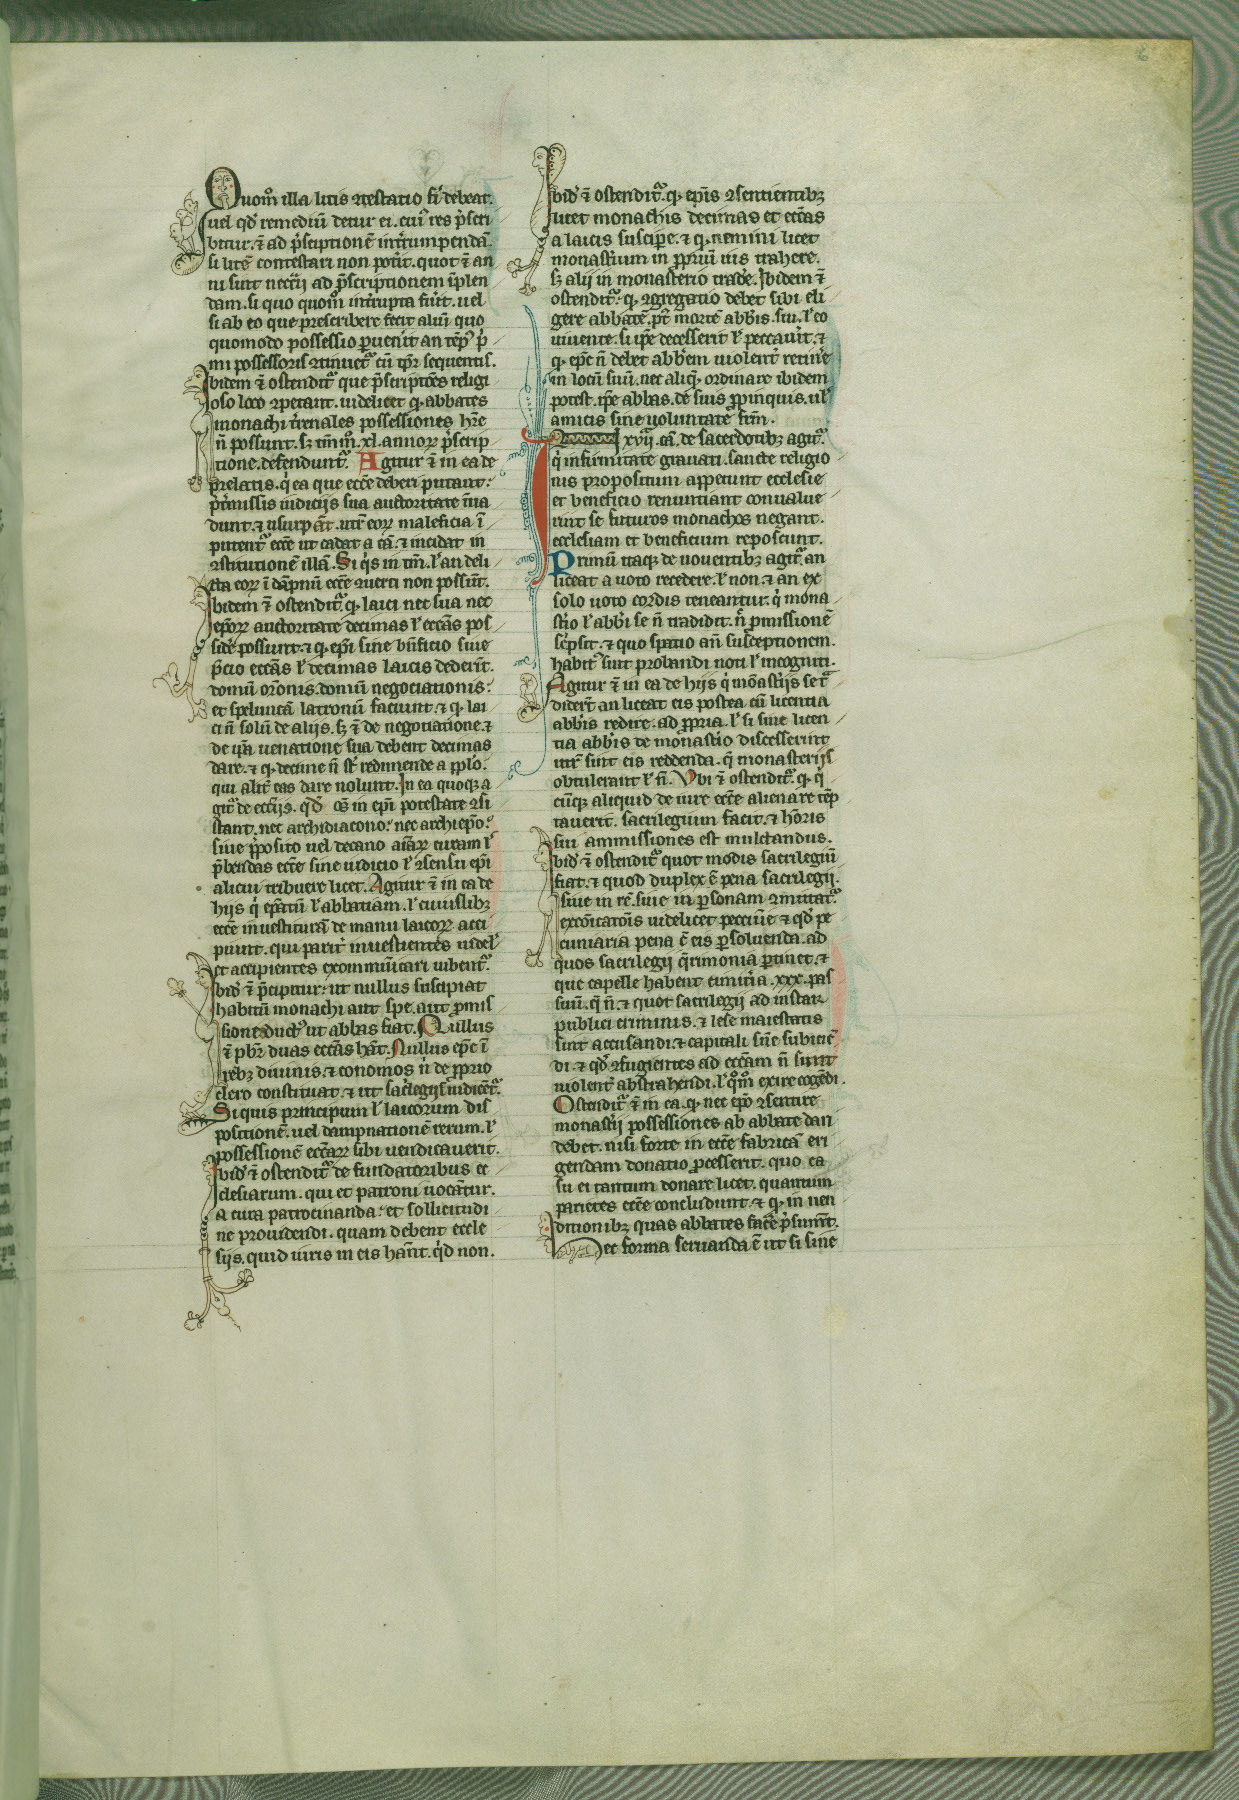 6
Quom̄ illa litis ꝯtestatio fi̾ debeat.
uel qd̾ remediū detur ei. cui̾ res p̾scri
bitur. ⁊̄ ad p̾sciptionē int̾rumpendā.
si litē contestari non pot̾it. quot ⁊̄ an
ni sunt neccīi ad p̾scriptionem īplen
dam. si quo quom̄ int̾rupta fu̾it. uel
si ab eo que prescribere fecit aliū quo
quomodo possessio ꝑuenit an tēpꝰ p̾
mi possessoris ꝯtinuet̾ cū tp̄r sequentis.
Ibidem ⁊̄ ostendit̾ que p̾scriptōes religi
oso loco ꝯpetant. uidelicet ꝙ abbates
monachi t̾renales possessiones hr̄e
n̄ possunt. sꝫ tm̄m̄. xl. annoꝝ p̾scrip
tione. defendunt̾. Agitur ⁊̄ in ca de
prelatis. q̾ ea que ecc̄e deberi putant.
p̾t̾missis iudicijs sua auctoritate īua
dunt. ⁊ usurpāt. utr̾ eoꝝ maleficia ī
putent̾ ecc̄e ut cadat a cā. ⁊ incidat in
ꝯstitutionē illā. Si q̾s in tm̄. l̾ an deli
cta eoꝝ ī dāpnū ecc̄e ꝯuerti non possūt.
Ibidem ⁊̄ ostendit̾ ꝙ laici nec sua nec
ep̄oꝝ auctoritate decimas l̾ ecc̄as pos
sid̾e possunt. ⁊ ꝙ ep̄i sine bn̄ficio siue
p̾cio ecc̄as l̾ decimas laicis dederīt.
domū or̄onis. domū negociationis.
et speluncā latronū faciunt. ⁊ ꝙ lai
ci n̄ solū de aliis. sꝫ ⁊̄ de negotiatione. ⁊
de ip̄a uenatione sua debent decimas
dare. ⁊ ꝙ decime n̄ st̄ redimende a pp̄lo.
qui alit̾ eas dare nolunt. In ea quoqꝫ a
git̾ de ecc̄ijs. qd̾ oēs in ep̄i potestate ꝯsi
stant. nec archidiacono. nec archiepō.
siue p̾posito uel decano aīaꝝ curam l̾
p̾bendas ecc̄e sine iudicio l̾ ꝯsensu ep̄i
alicui tribuere licet. Agitur ⁊̄ in ca de
hijs q̾ ep̄atū l̾ abbatiam. l̾ cuiuslibꝫ
ecc̄e inuestiturā de manu laicoꝝ acci
piunt. qui parit̾ inuestientes uidel̾
et accipientes excommūicari iubent̾.
Ibid̾ ⁊̄ p̾cipitur. ut nullus suscipiat
habitū monachi aut spe. aut ꝓmis
sione ductꝰ ut abbas fiat. Nullus
⁊̄ pb̄r duas ecc̄as hāt. Nullus ep̄c ī
rebꝫ diuinis. ⁊ conomos n̄ de ꝓprio
clero constituat. ⁊ ut sac̾legij s̄ iudicēt̾.
Si quis principum l̾ laicorum dis
positionē. uel dampnationē rerum. l̾
possessionē ecc̄aꝝ sibi uendicauerit.
Ibid̾ ⁊̄ ostendit̾ de fundatoribus ec
clesiarum. qui et patroni uocātur.
a cura patrocinanda. et sollicitudi
ne prouidendi. quam debent eccle
siis. quid iuris in eis hānt. q̾d non.
Ibid̾ ⁊̄ ostendit̾. ꝙ ep̄is ꝯsentientibꝫ
licet monachis decimas et ecc̄as
a laicis suscip̾e. ⁊ ꝙ nemini licet
monast̾ium in ꝓpriū ius trahere.
sꝫ alij in monasterio trad̾e. Ibidem ⁊̄
ostendit̾. ꝙ ꝯgregatio debet sibi eli
gere abbatē. p̾t mortē abb̄is. sui. l̾ eo
uiuente. si ip̄e decesserit l̾ peccau̾it. ⁊
ꝙ ep̄c n̄ debet abb̄em uiolent̾ retin̾e
in locū suū. nec aliq̾ ordinare ibidem
potest. ip̄e abbas. de suis ꝓpinquis. ul̾
amicis sine uoluntate frm̄.
In xvij. cā. de sacerdotibꝫ agit̾.
q̾ infirmitate grauati. sancte religio
nis propositum appetunt ecclesie
et beneficio renuntiant conualue
runt se futuros monachos negant.
ecclesiam et beneficium reposcunt.
Primū itaqꝫ de uouentibꝫ agit̾ an
liceat a uoto recedere. l̾ non. ⁊ an ex
solo uoto cordis teneantur. q̾ mona
st̾io l̾ abb̄i se n̄ tradidit. n̾ ꝓmissionē
sc̾psit. ⁊ quo spatio an̄ susceptionem.
habitꝰ sint probandi noti l̾ incogniti.
Agitur ⁊̄ in ca de hiis q̾ mōast̾iis se t̾
didert̾ an liceat eis postea cū licentia
abb̄is redire. ad ꝓpria. l̾ si sine licen
tia abb̄is de monast̾io discesserint
utr̾ sint eis reddenda. q̾ monasterijs
obtulerant l̾ n̄. Vbi ⁊̄ ostendit̾. ꝙ q̾
cūqꝫ aliquid de iure ecc̄e alienare tēp
tauerit. sacrilegium facit. ⁊ hōris
sui ammissiones est mulctandus.
Ibid̾ ⁊̄ ostendit̾ quot modis sacrilegiū
fiat. ⁊ quod duplex ē pena sacrilegij.
siue in rē. siue in ꝑsonam ꝯmittat̾.
excōicatōis uidelicet peccūie ⁊ qd̾ pe
cuniaria pena ē eis ꝑsoluenda. ad
quos sacrilegij q̾rimonia ꝑtinet. ⁊
que capelle habent cimit̾ia. xxx. pas
suū. q̾ n̄. ⁊ quot sacrilegij ad instar
publici criminis. ⁊ lese maiestatis
sint accusandi. ⁊ capitali sn̄e subicie
di. ⁊ qd̾ ꝯfugientes ad ecc̄am n̄ sunt
uiolent̾ abstrahendi. l̾ qōm̄ exire cogēdi.
Ostendit̾ ⁊̄ in ca. ꝙ nec ep̄o ꝯsentire
monast̾ij possessiones ab abbate dari
debet. nisi forte in ecc̄e fabricā eri
gendam donatio p̾cesserit. quo ca
su ei tantum donare licet. quantum
parietes ecc̄e concludunt. ⁊ ꝙ in uen
ditionibꝫ quas abbates fac̾e p̾sumūt.
Hec forma seruanda ē ut si sine